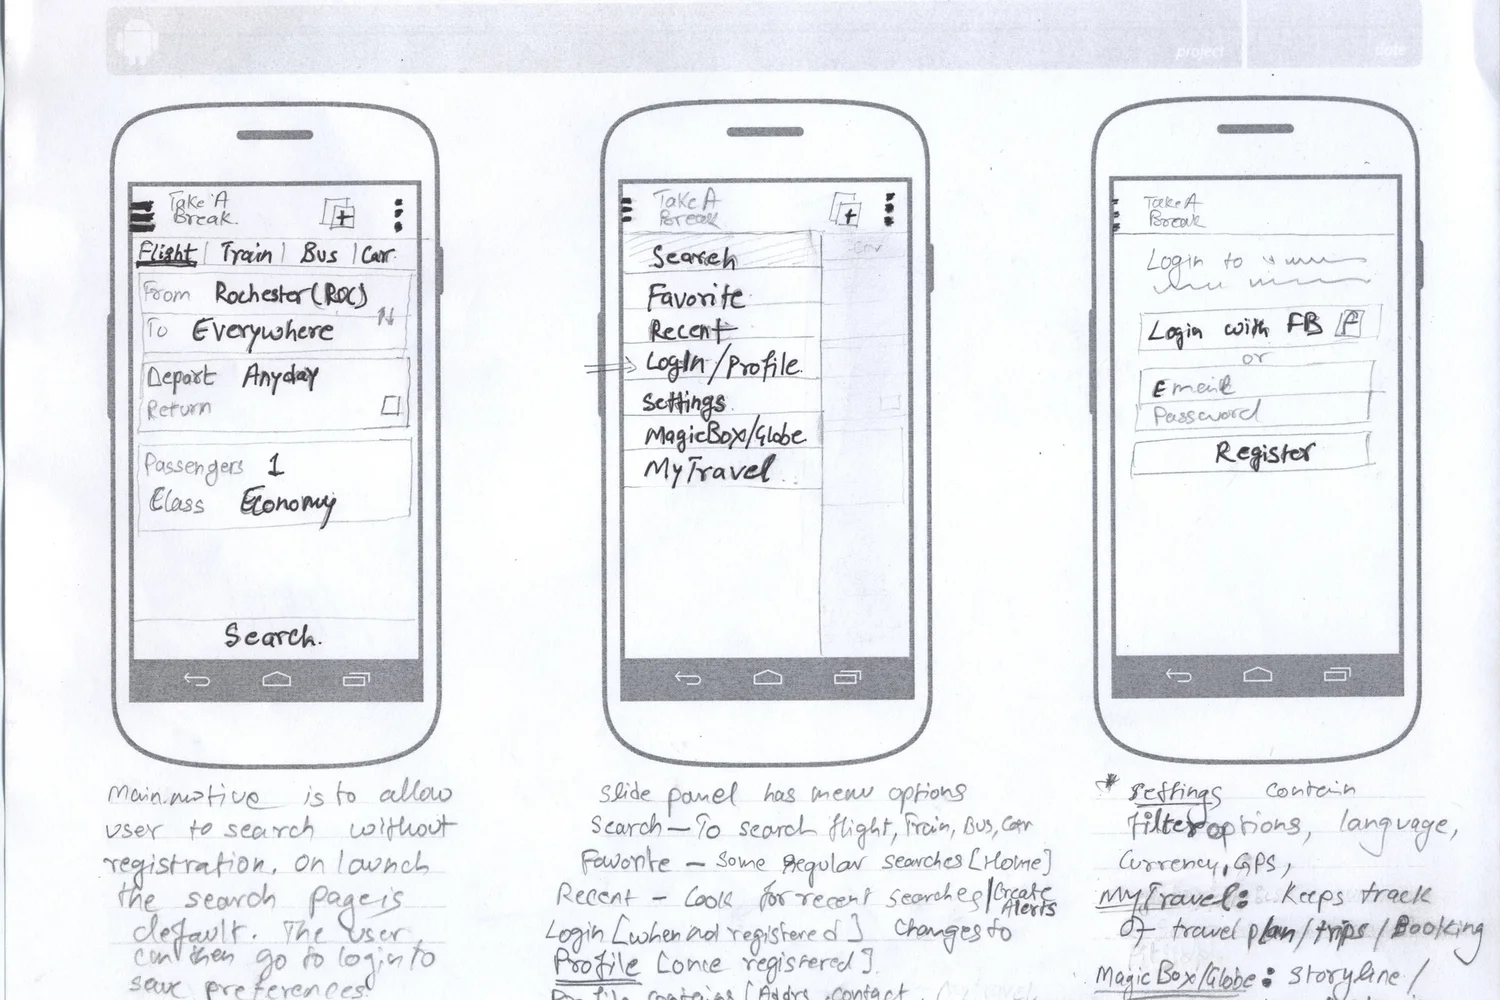 project date
Take A
Break.
Flight | Train | Bus | Car
From Rochester (ROC)
To Everywhere
Depart Anyday
Return
Passengers 1
Class Economy
Search.
Main motive is to allow
user to search without
registration. On launch
the search page is
default. The user
can then go to login to
save preferences.
Take A
Break
Search
Favorite
Recent
LogIn/Profile
Settings
MagicBox/Globe
MyTravel
Slide panel has menu options
Search – To search flight, Train, Bus, Car
Favorite – Some Regular searches [Home]
Recent – Look for recent searches/Create
Alerts
Login [when not registered] Changes to
Profile [once registered].
Profile contains [Addrs, contact,
Take A
Break
Login to
Login with FB f
or
Email
Password
Register
* Settings contain
filter options, language,
Currency, GPS,
MyTravel: Keeps track
of travel plan/trips/Booking
MagicBox/Globe: Storyline/